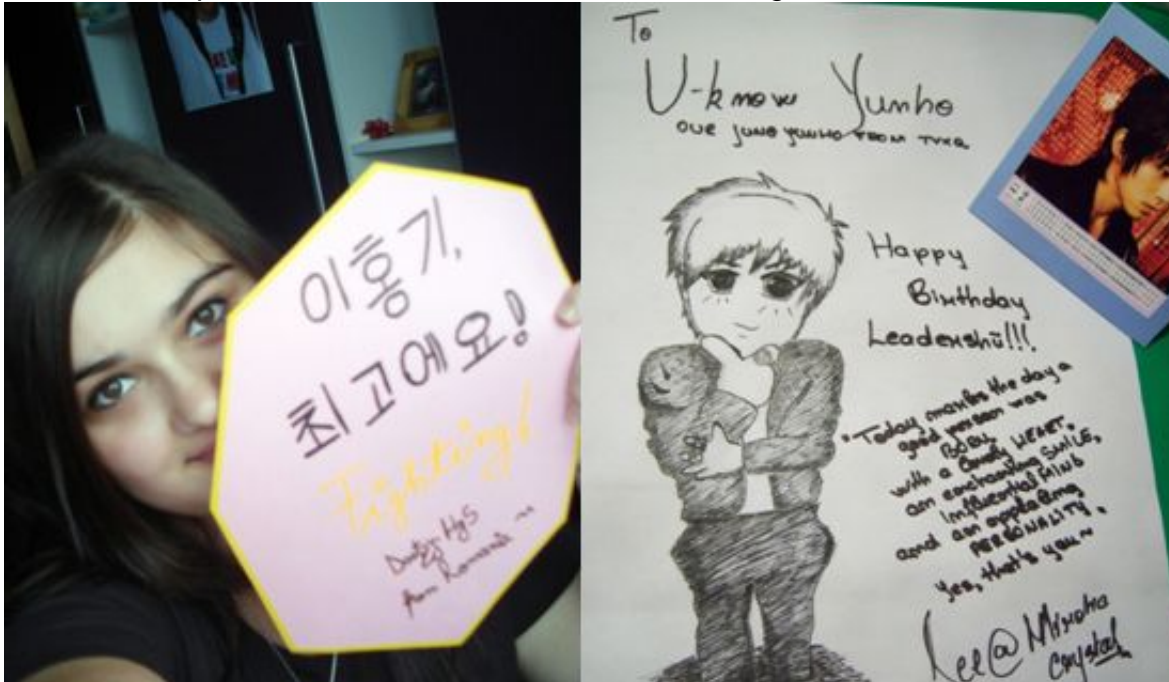 이홍기,
최고에요!
Fighting!
from Romania ~
To
U-know Yunho
OUR JUNG YUNHO FROM TVXQ
Happy
Birthday
Leadershii!!!
"Today marks the day a
good person was
BORN
with a lovely HEART,
an enchanting SMILE,
influential MIND
and an appealing
PERSONALITY.
Yes, that's you~
Lee@Mirotic
Crystal